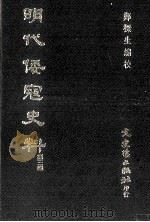 鄭樑生編校
明代倭寇史料
文史哲出版社印行